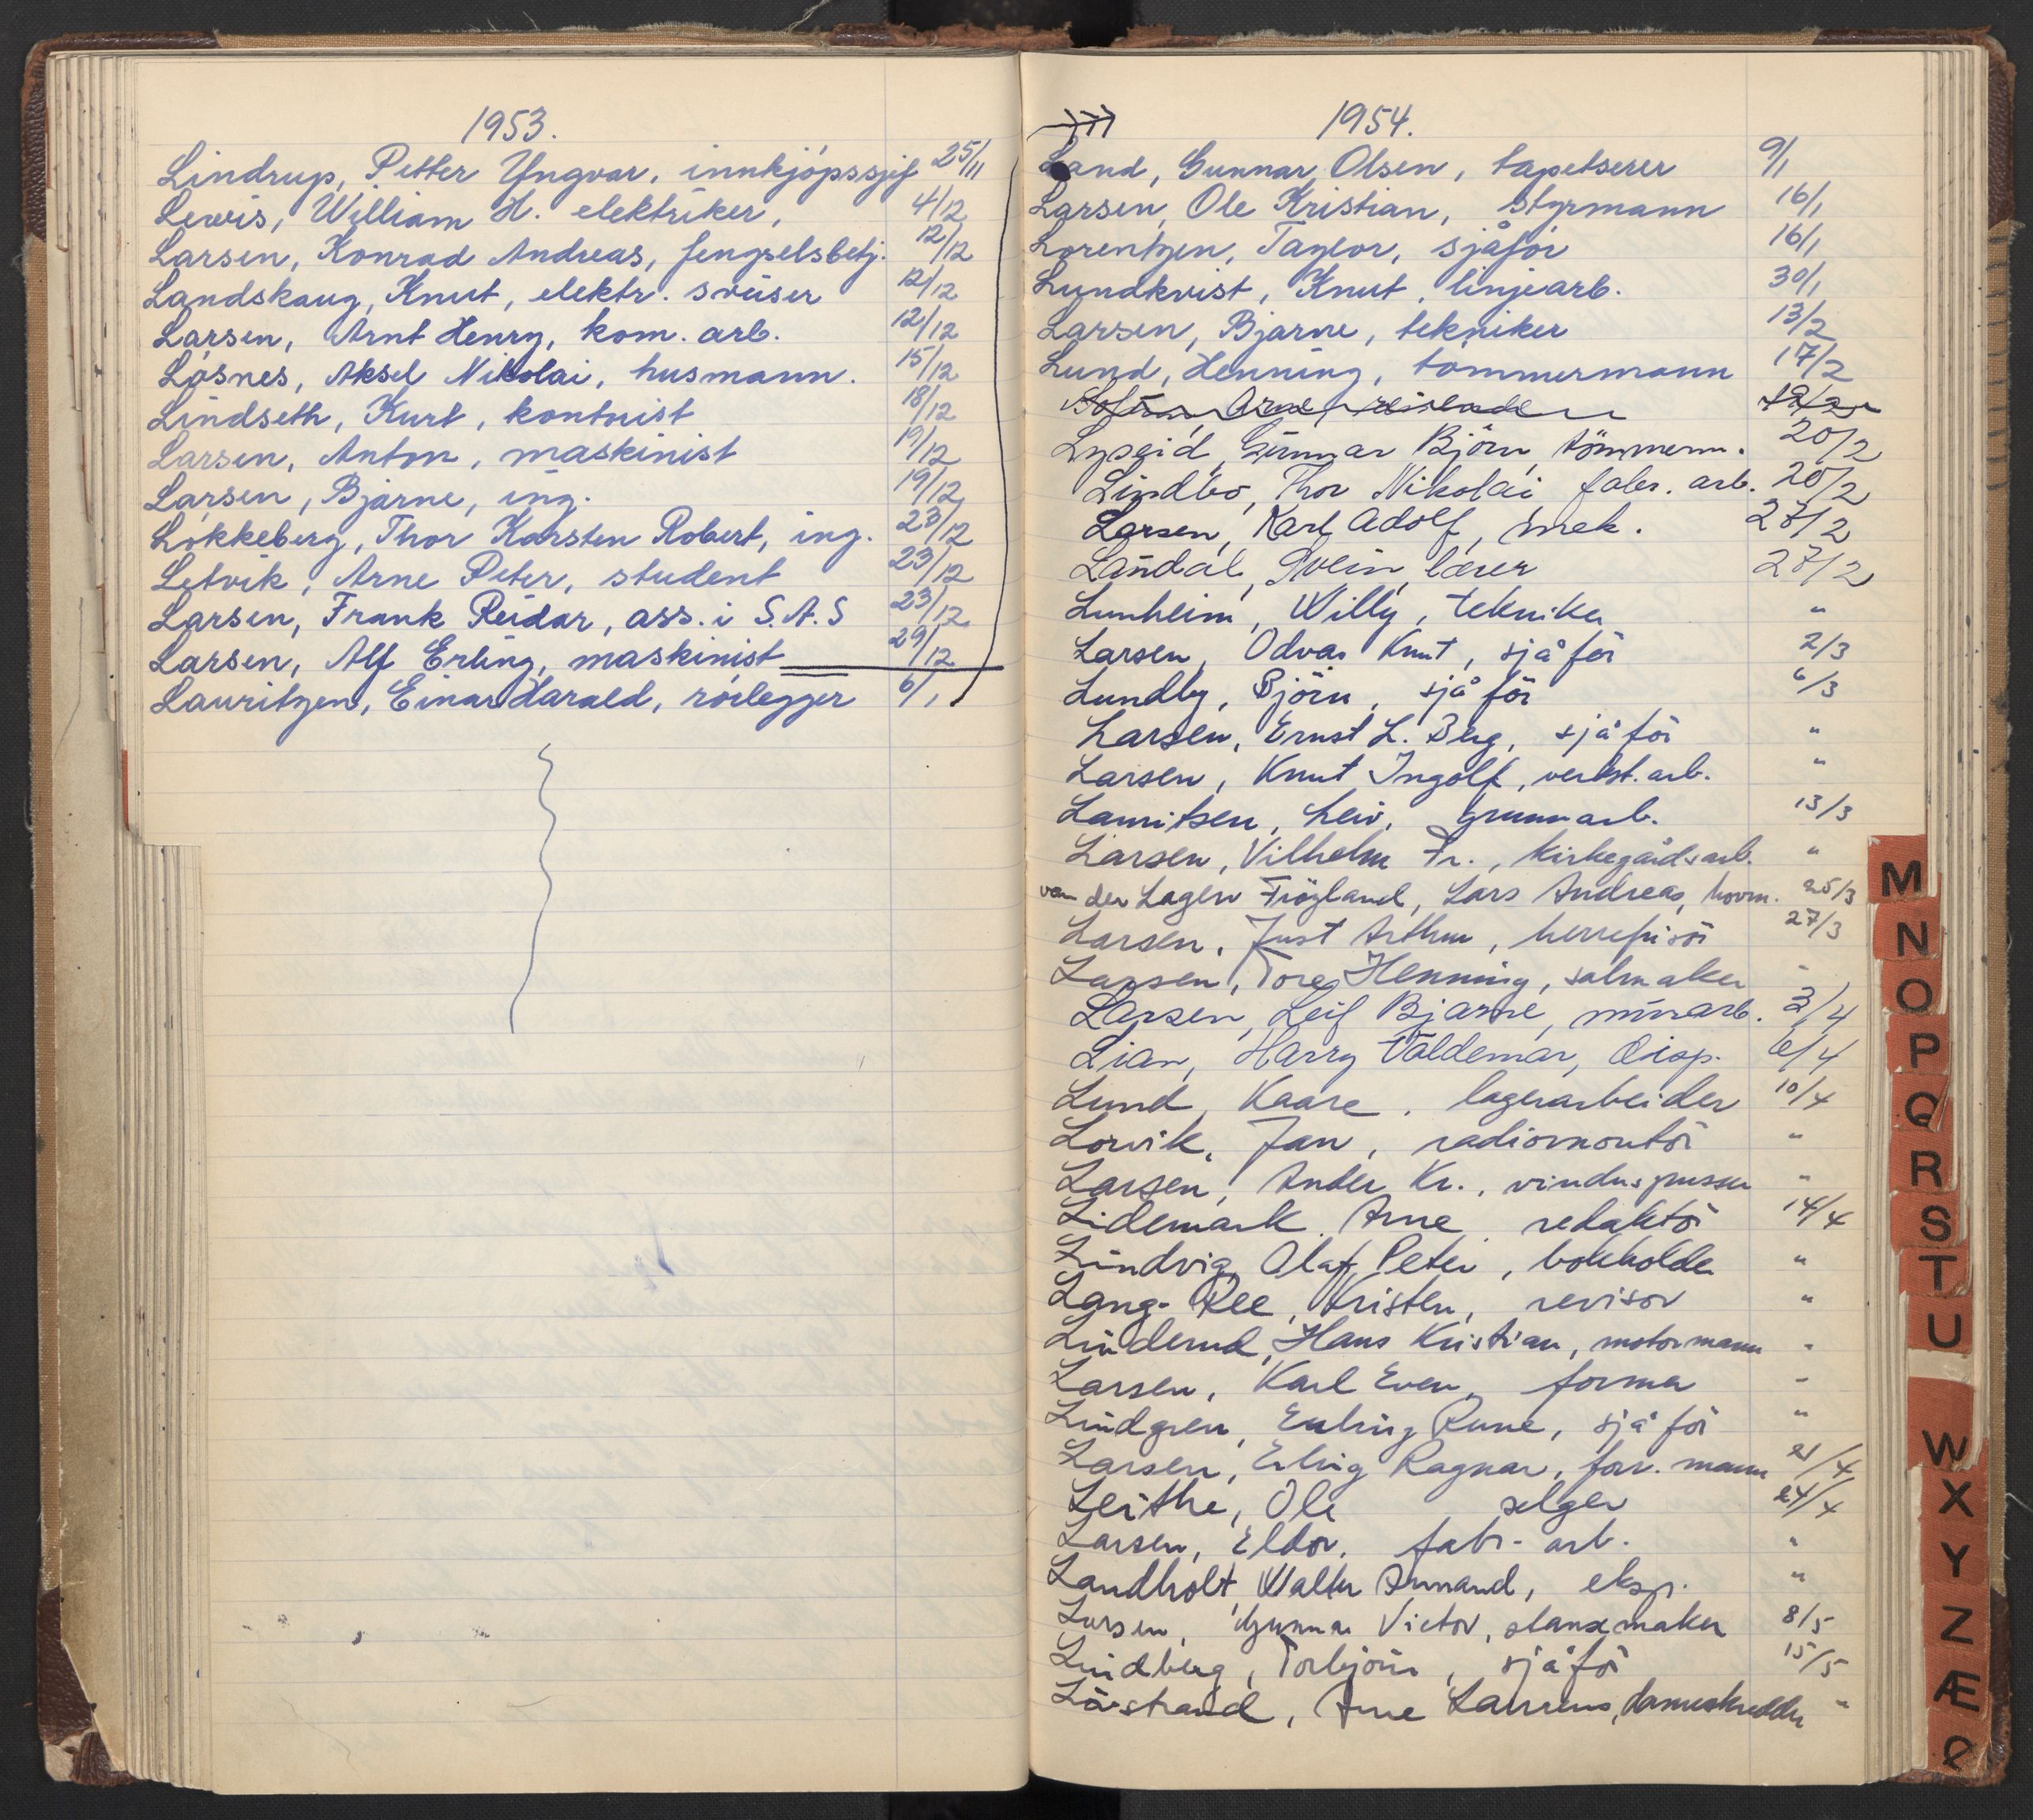 1953.
Lindrup, Petter Yngvar, innkjöpssjef 25/11
Lewis, William H. elektriker, 4/12
Larsen, Konrad Andreas, fengselsbetj. 12/12
Landskaug, Knut, elektr. sveiser 12/12
Larsen, Arnt Henry, kom. arb. 12/12
Løsnes, Aksel Nikolai, husmann. 15/12
Lindseth, Kurt, kontorist 18/12
Larsen, Anton, maskinist 19/12
Larsen, Bjarne, ing. 19/12
Løkkeberg, Thor Karsten Robert, ing. 23/12
Letvik, Arne Peter, student 23/12
Larsen, Frank Reidar, ass. i S.A.S 23/12
Larsen, Alf Erling, maskinist 29/12
Lauritzen, Einar Harald, rörlegger 6/1
1954.
Land, Gunnar Olsen, tapetserer 9/1
Larsen, Ole Kristian, styrmann 16/1
Lorentzen, Taylor, sjåför 16/1
Lundkvist, Knut, linjearb. 30/1
Larsen, Bjarne, tekniker 13/2
Lund, Henning, tømmermann 17/2
Arne, reisende
Gunnar Björn, tömmerm. 20/2
Lindbo, Thor Nikolai fabr. arb. 20/2
Larsen, Karl Adolf, mek. 27/2
Landal, Svein, lærer 27/2
Lunheim, Willy, tekniker "
Larsen, Odvar Knut, sjåför 2/3
Lundby, Björn, sjåför 6/3
Larsen, Ernst L. Berg, sjåför "
Larsen, Knut Ingolf, verkst. arb. "
Lauritsen, Leiv, grunnarb. 13/3
Larsen, Vilhelm Fr., kirkegårdsarb. "
von der Lagen Fröyland, Lars Andreas, hovm. 25/3
Larsen, Just Arthur, herrefrisör 27/3
Larsen, Tore Henning, salmaker "
Larsen, Leif Bjarne, murarb. 3/4
Lian, Harry Valdemar, Disp. 6/4
Lund, Kaare, lagerarbeider 10/4
Lorvik, Jan, radiomontör "
Larsen, Ander Kr., vinduspusser "
Lidemark, Arne, redaktör 14/4
Lindvig, Olaf Peter, bokholder "
Lang-Ree, Kristen, revisor "
Linderud, Hans Kristian, motormann "
Larsen, Karl Even, former "
Lindgren, Erling Rune, sjåför "
Larsen, Erling Ragnar, forr. mann 21/4
Leithe, Ole selger 24/4
Larsen, Eldor, fabr-arb. "
Landholt, Walter Armand, eksp. "
Larsen, Gunnar Victor, stansemaker 8/5
Lindberg, Torbjörn, sjåför 15/5
Lövstrand, Arne Laurens, dameskredder "
M
N
O
P
Q
R
S
T
U
W
X
Y
Z
Æ
Ø